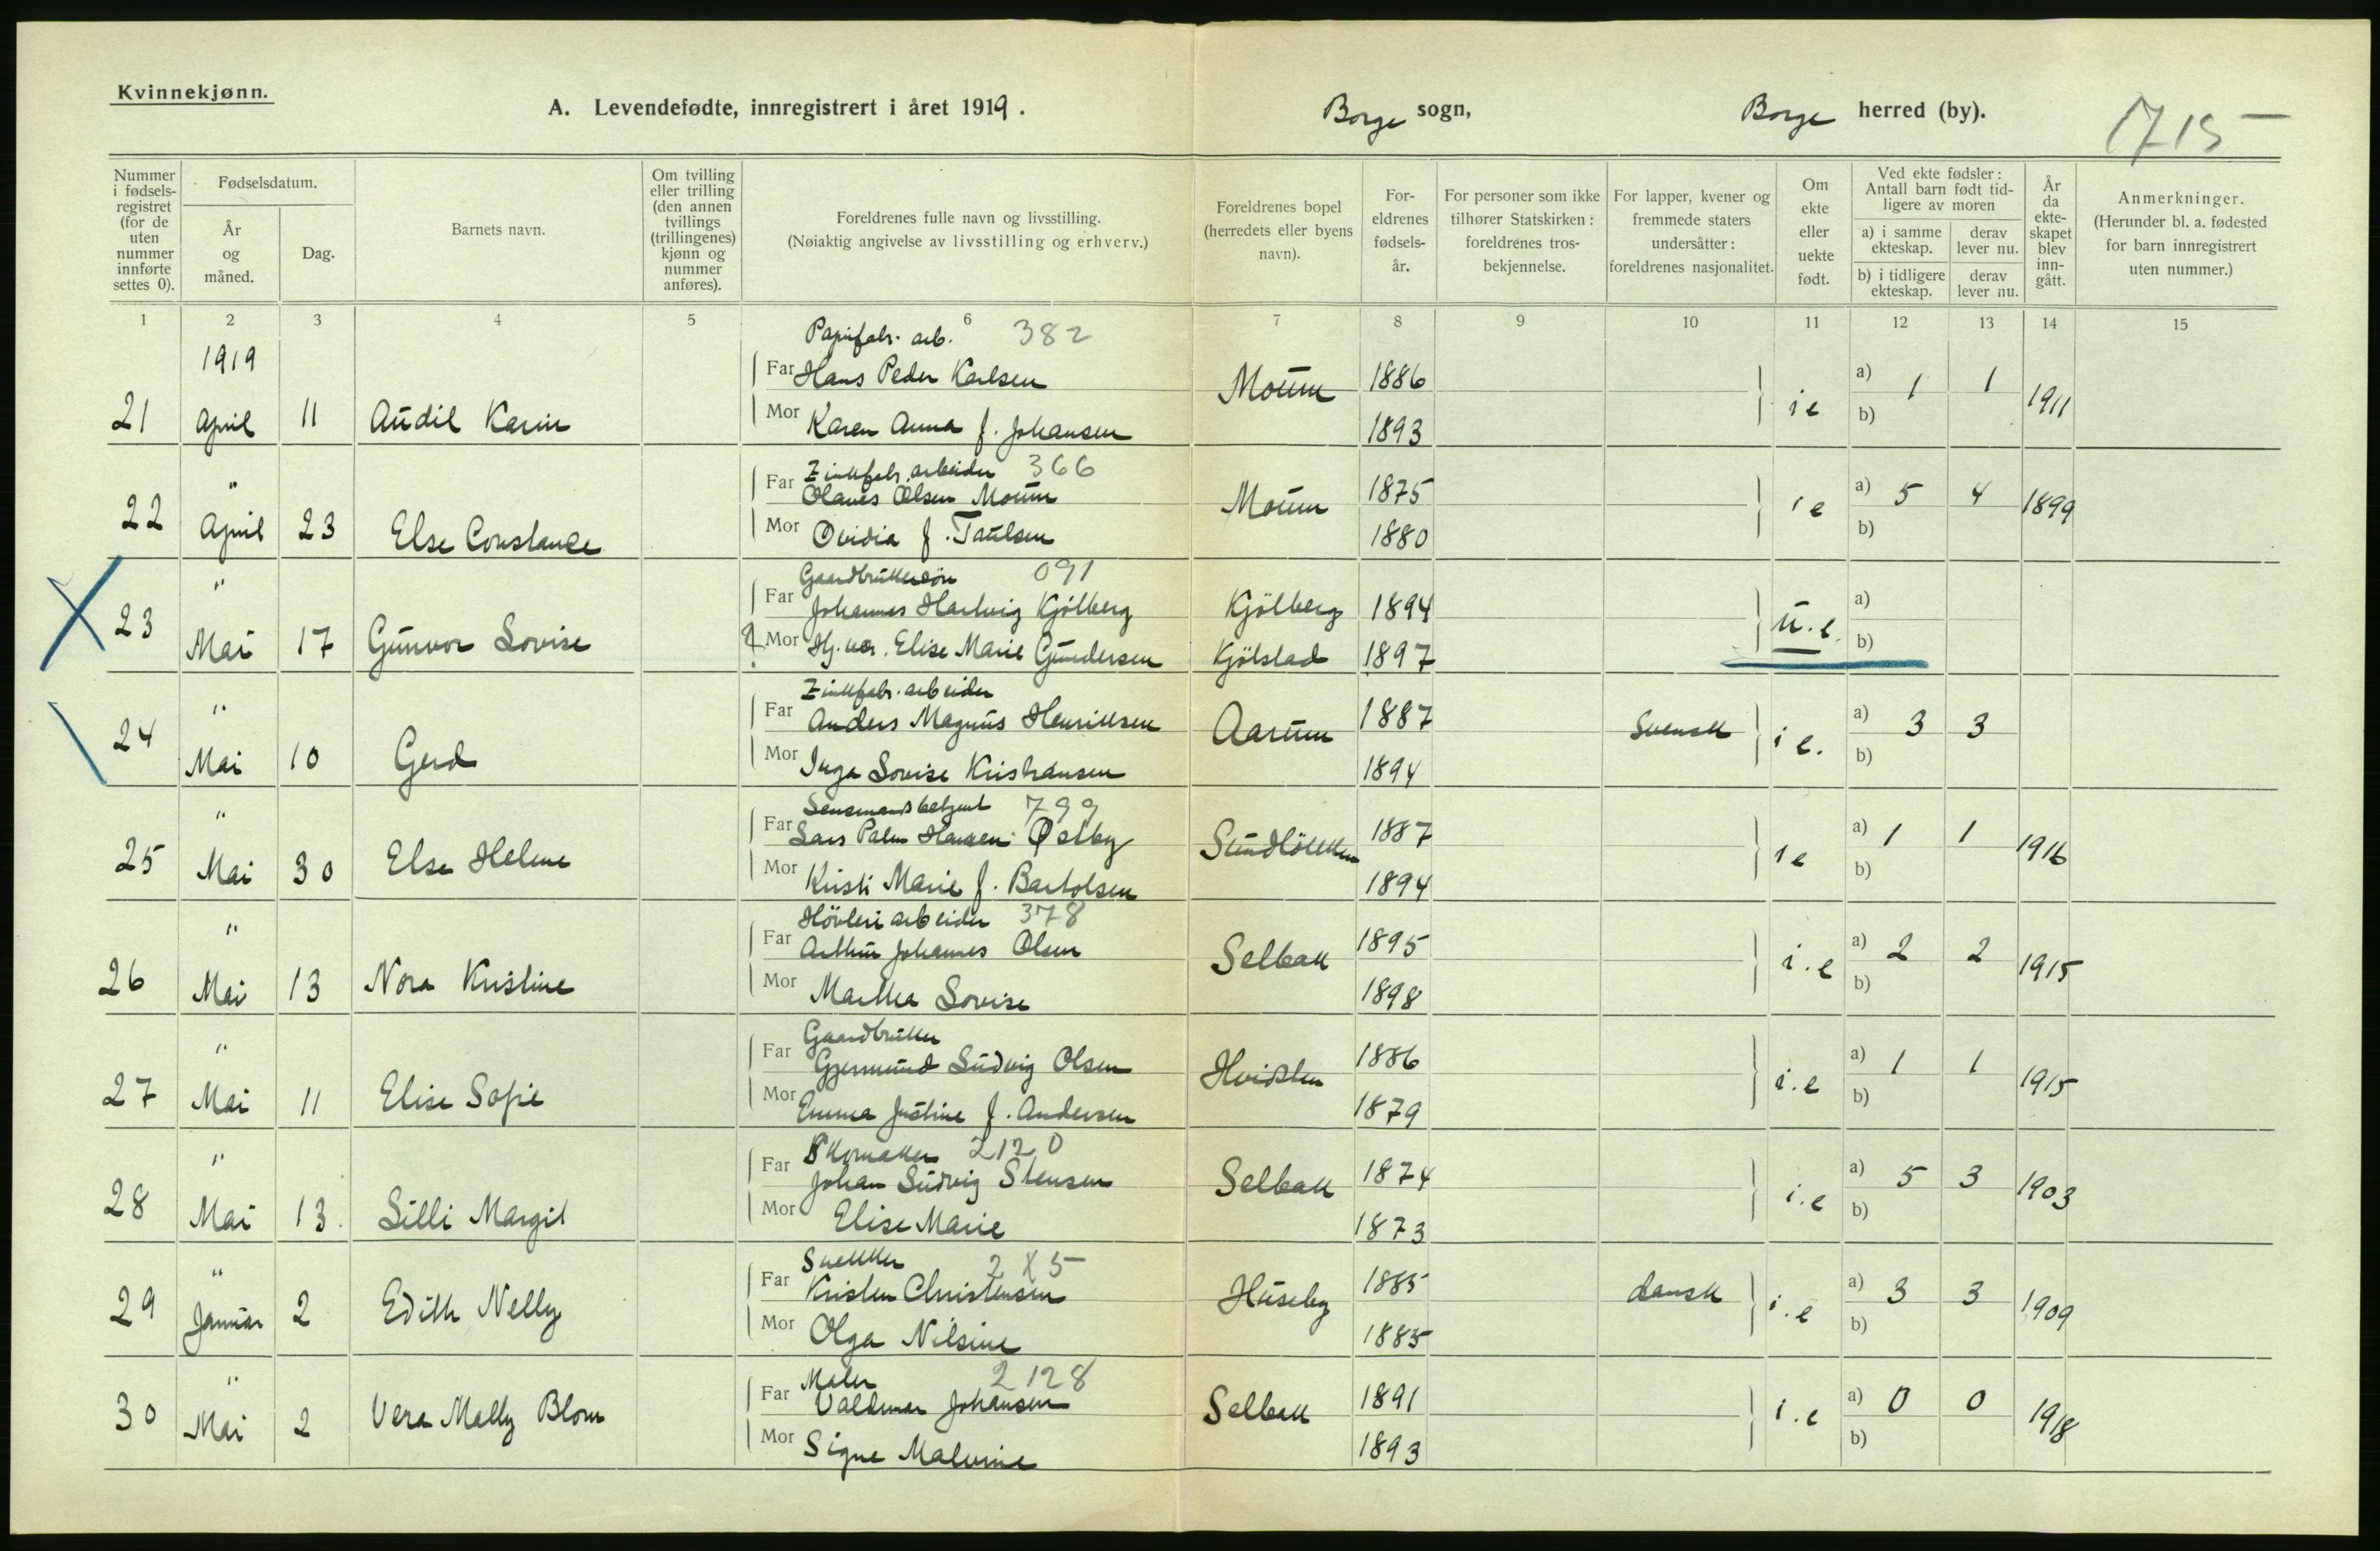 Kvinnekjønn.
A. Levendefødte, innregistrert i året 1919. Borge sogn, Borge herred (by). 1715
Nummer i fødselsregistret (for de uten nummer innførte settes 0).
Fødselsdatum.
År og måned.
Dag.
Barnets navn.
Om tvilling eller trilling (den annen tvillings (trillingenes) kjønn og nummer anføres).
Foreldrenes fulle navn og livsstilling.
(Nøiaktig angivelse av livsstilling og erhverv.)
Foreldrenes bopel (herredets eller byens navn).
Foreldrenes fødselsår.
For personer som ikke tilhører Statskirken: foreldrenes trosbekjennelse.
For lapper, kvener og fremmede staters undersåtter: foreldrenes nasjonalitet.
Om ekte eller uekte født.
Ved ekte fødsler: Antall barn født tidligere av moren
a) i samme ekteskap.
derav lever nu.
b) i tidligere ekteskap.
derav lever nu.
År da ekteskapet blev inngått.
Anmerkninger.
(Herunder bl. a. fødested for barn innregistrert uten nummer.)
1 2 3 4 5 6 7 8 9 10 11 12 13 14 15
1919 Papirfabr. arb. 382
Far Hans Peder Karlsen Moum 1886 a) 1 1
21 April 11 Audil Karin Mor Karen Anna f. Johansen 1893 i e b) 1911
" Far Zinkfabr. arbeider 366
Olaves Olsen Moum Moum 1875 a) 5 4
22 April 23 Else Constance Mor Ovidia f. Paulsen 1880 i e b) 1899
" Gaardbrukersön 091
Far Johannes Hartvig Kjölberg Kjölberg 1894 a)
23 Mai 17 Gunvor Lovise Mor Hj. vær. Elise Marie Gundersen Kjölstad 1897 u.e. b)
" Zinkfabr. arbeider
Far Anders Magnus Henriksen Aarum 1887 Svensk a) 3 3
24 Mai 10 Gerd Mor Inga Lovise Kristiansen 1894 i e. b)
" Lensmandsbetjent 799
Far Lars Palm Hansen Østby Sundlökken 1887 a) 1 1
25 Mai 30 Else Helene Mor Kristi Marie f. Bartolsen 1894 i e b) 1916
" Hövleriarbeider 378
Far Arthur Johannes Olsen Selbak 1895 a) 2 2
26 Mai 13 Nora Kristine Mor Martha Lovise 1898 i.e b) 1915
" Gaardbruker
Far Gjermund Ludvig Olsen Hvidsten 1886 a) 1 1
27 Mai 11 Elise Sofie Mor Emma Justine f. Andersen 1879 i.e b) 1915
" Skomaker 2120
Far Johan Ludvig Stensen Selbak 1874 a) 5 3
28 Mai 13. Lilli Margit Mor Elise Marie 1873 i.e b) 1903
" Snekker 2 X 5
Far Kristen Christensen Huseby 1885 dansk a) 3 3
29 Januar 2 Edith Nelly Mor Olga Nilsine 1885 i.e b) 1909
" Maler 2128
Far Valdemar Johansen Selbak 1891 a) 0 0
30 Mai 2 Vera Molly Blom Mor Signe Malvine 1893 i.e b) 1918